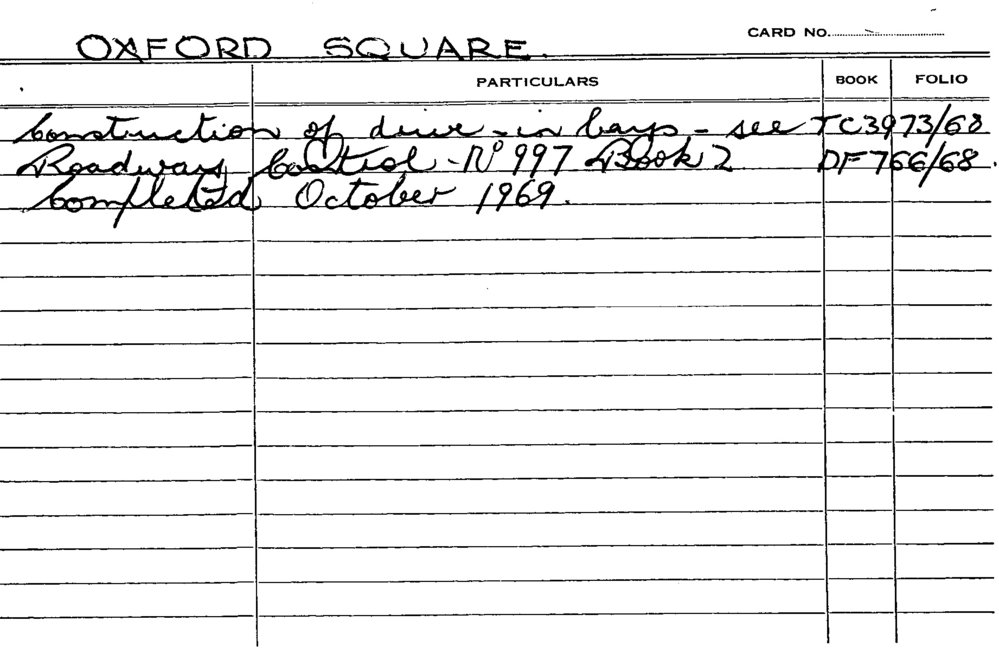 CARD NO.
OXFORD SQUARE.
PARTICULARS BOOK FOLIO
Construction of drive-in bays - see TC3973/68
Roadways Control - No 997 Book 2 DF766/68.
Completed October 1969.